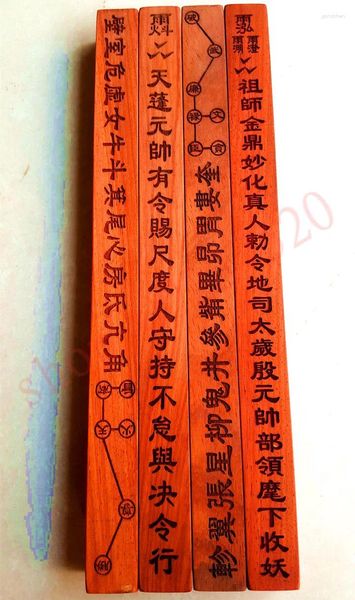 祖師金鼎妙化真人勅令地司太歲殷元帥部領麾下收妖
破
武
廉
文
祿
貪
奎婁胃昴畢觜參井鬼柳星張翼軫
天蓬元帥有令賜尺度人守持不怠與决令行
壁室危虛女牛斗箕尾心房氐亢角